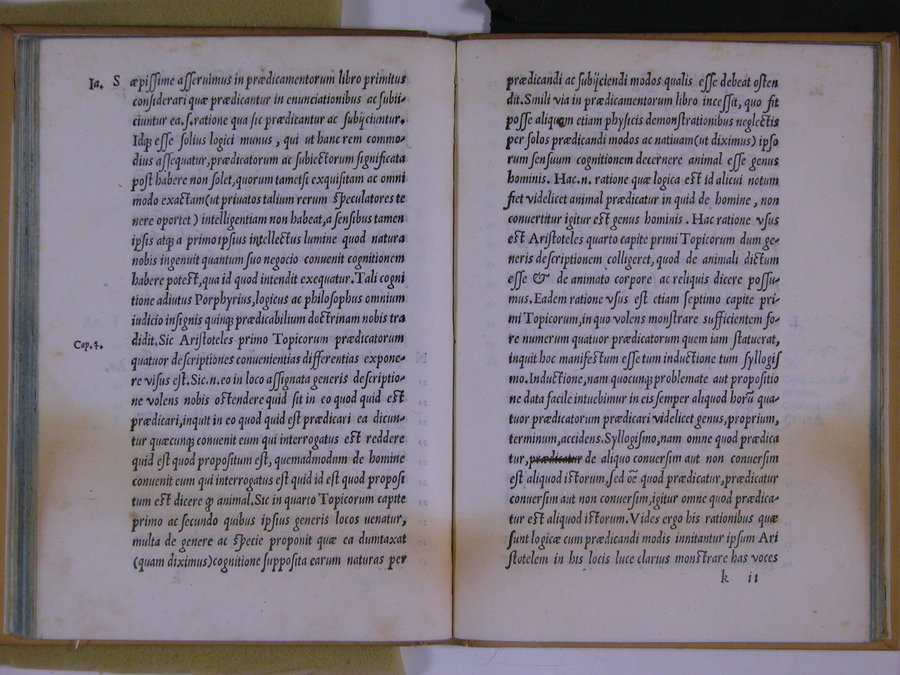 Ia. S æpissime asseruimus in prædicamentorum libro primitus
considerari quæ prædicantur in enunciationibus ac subii-
ciuntur ea.s.ratione qua sic prædicantur ac subijciuntur.
Idq; esse solius logici munus, qui ut hanc rem commo-
dius assequatur,prædicatorum ac subiectorum significata
post habere non solet,quorum tametsi exquisitam ac omni
modo exactam(ut priuatos talium rerum speculatores te
nere oportet) intelligentiam non habeat,a sensibus tamen
ipsis atq; a primo ipsius intellectus lumine quod natura
nobis ingenuit quantum suo negocio conuenit cognitionem
habere potest,qua id quod intendit exequatur.Tali cogni
tione adiutus Porphyrius,logicus ac philosophus omnium
iudicio insignis quinq; prædicabilium doctrinam nobis tra
Cap.4. didit.Sic Aristoteles primo Topicorum prædicatorum
quatuor descriptiones conuenientias differentias expone-
re visus est.Sic.n.eo in loco assignata generis descriptio-
ne volens nobis ostendere quid sit in eo quod quid est
prædicari,inquit in eo quod quid est prædicari ea dicun-
tur quæcunq; conuenit eum qui interrogatus est reddere
quid est quod propositum est, quemadmodum de homine
conuenit eum qui interrogatus est quid id est quod proposi
tum est dicere ꝙ animal.Sic in quarto Topicorum capite
primo ac secundo quibus ipsius generis locos uenatur,
multa de genere ac specie proponit quæ ea dumtaxat
(quam diximus)cognitione supposita earum naturas per
prædicandi ac subijciendi modos qualis esse debeat osten
dit.Simili via in prædicamentorum libro incessit, quo fit
posse aliquem etiam physicis demonstrationibus neglectis
per solos prædicandi modos ac natiuam(ut diximus) ipso
rum sensuum cognitionem decernere animal esse genus
hominis. Hac.n. ratione quæ logica est id alicui notum
fiet videlicet animal prædicatur in quid de homine, non
conuertitur igitur est genus hominis. Hac ratione vsus
est Aristoteles quarto capite primi Topicorum dum ge-
neris descriptionem colligeret,quod de animali dictum
esse & de animato corpore ac reliquis dicere possu-
mus.Eadem ratione vsus est etiam septimo capite pri-
mi Topicorum,in quo volens monstrare sufficientem fo-
re numerum quatuor prædicatorum quem iam statuerat,
inquit hoc manifestum esse tum inductione tum syllogis
mo.Inductione,nam quocunq; problemate aut propositio
ne data facile intuebimur in eis semper aliquod horū qua-
tuor prædicatorum prædicari videlicet genus,proprium,
terminum,accidens.Syllogismo,nam omne quod prædica
tur,prædicatur de aliquo conuersim aut non conuersim
est aliquod istorum,sed oē quod prædicatur,prædicatur
conuersim aut non conuersim,igitur omne quod prædica-
tur est aliquod istorum.Vides ergo his rationibus quæ
sunt logicæ cum prædicandi modis innitantur ipsum Ari
stotelem in his locis luce clarius monstrare has voces
k ii